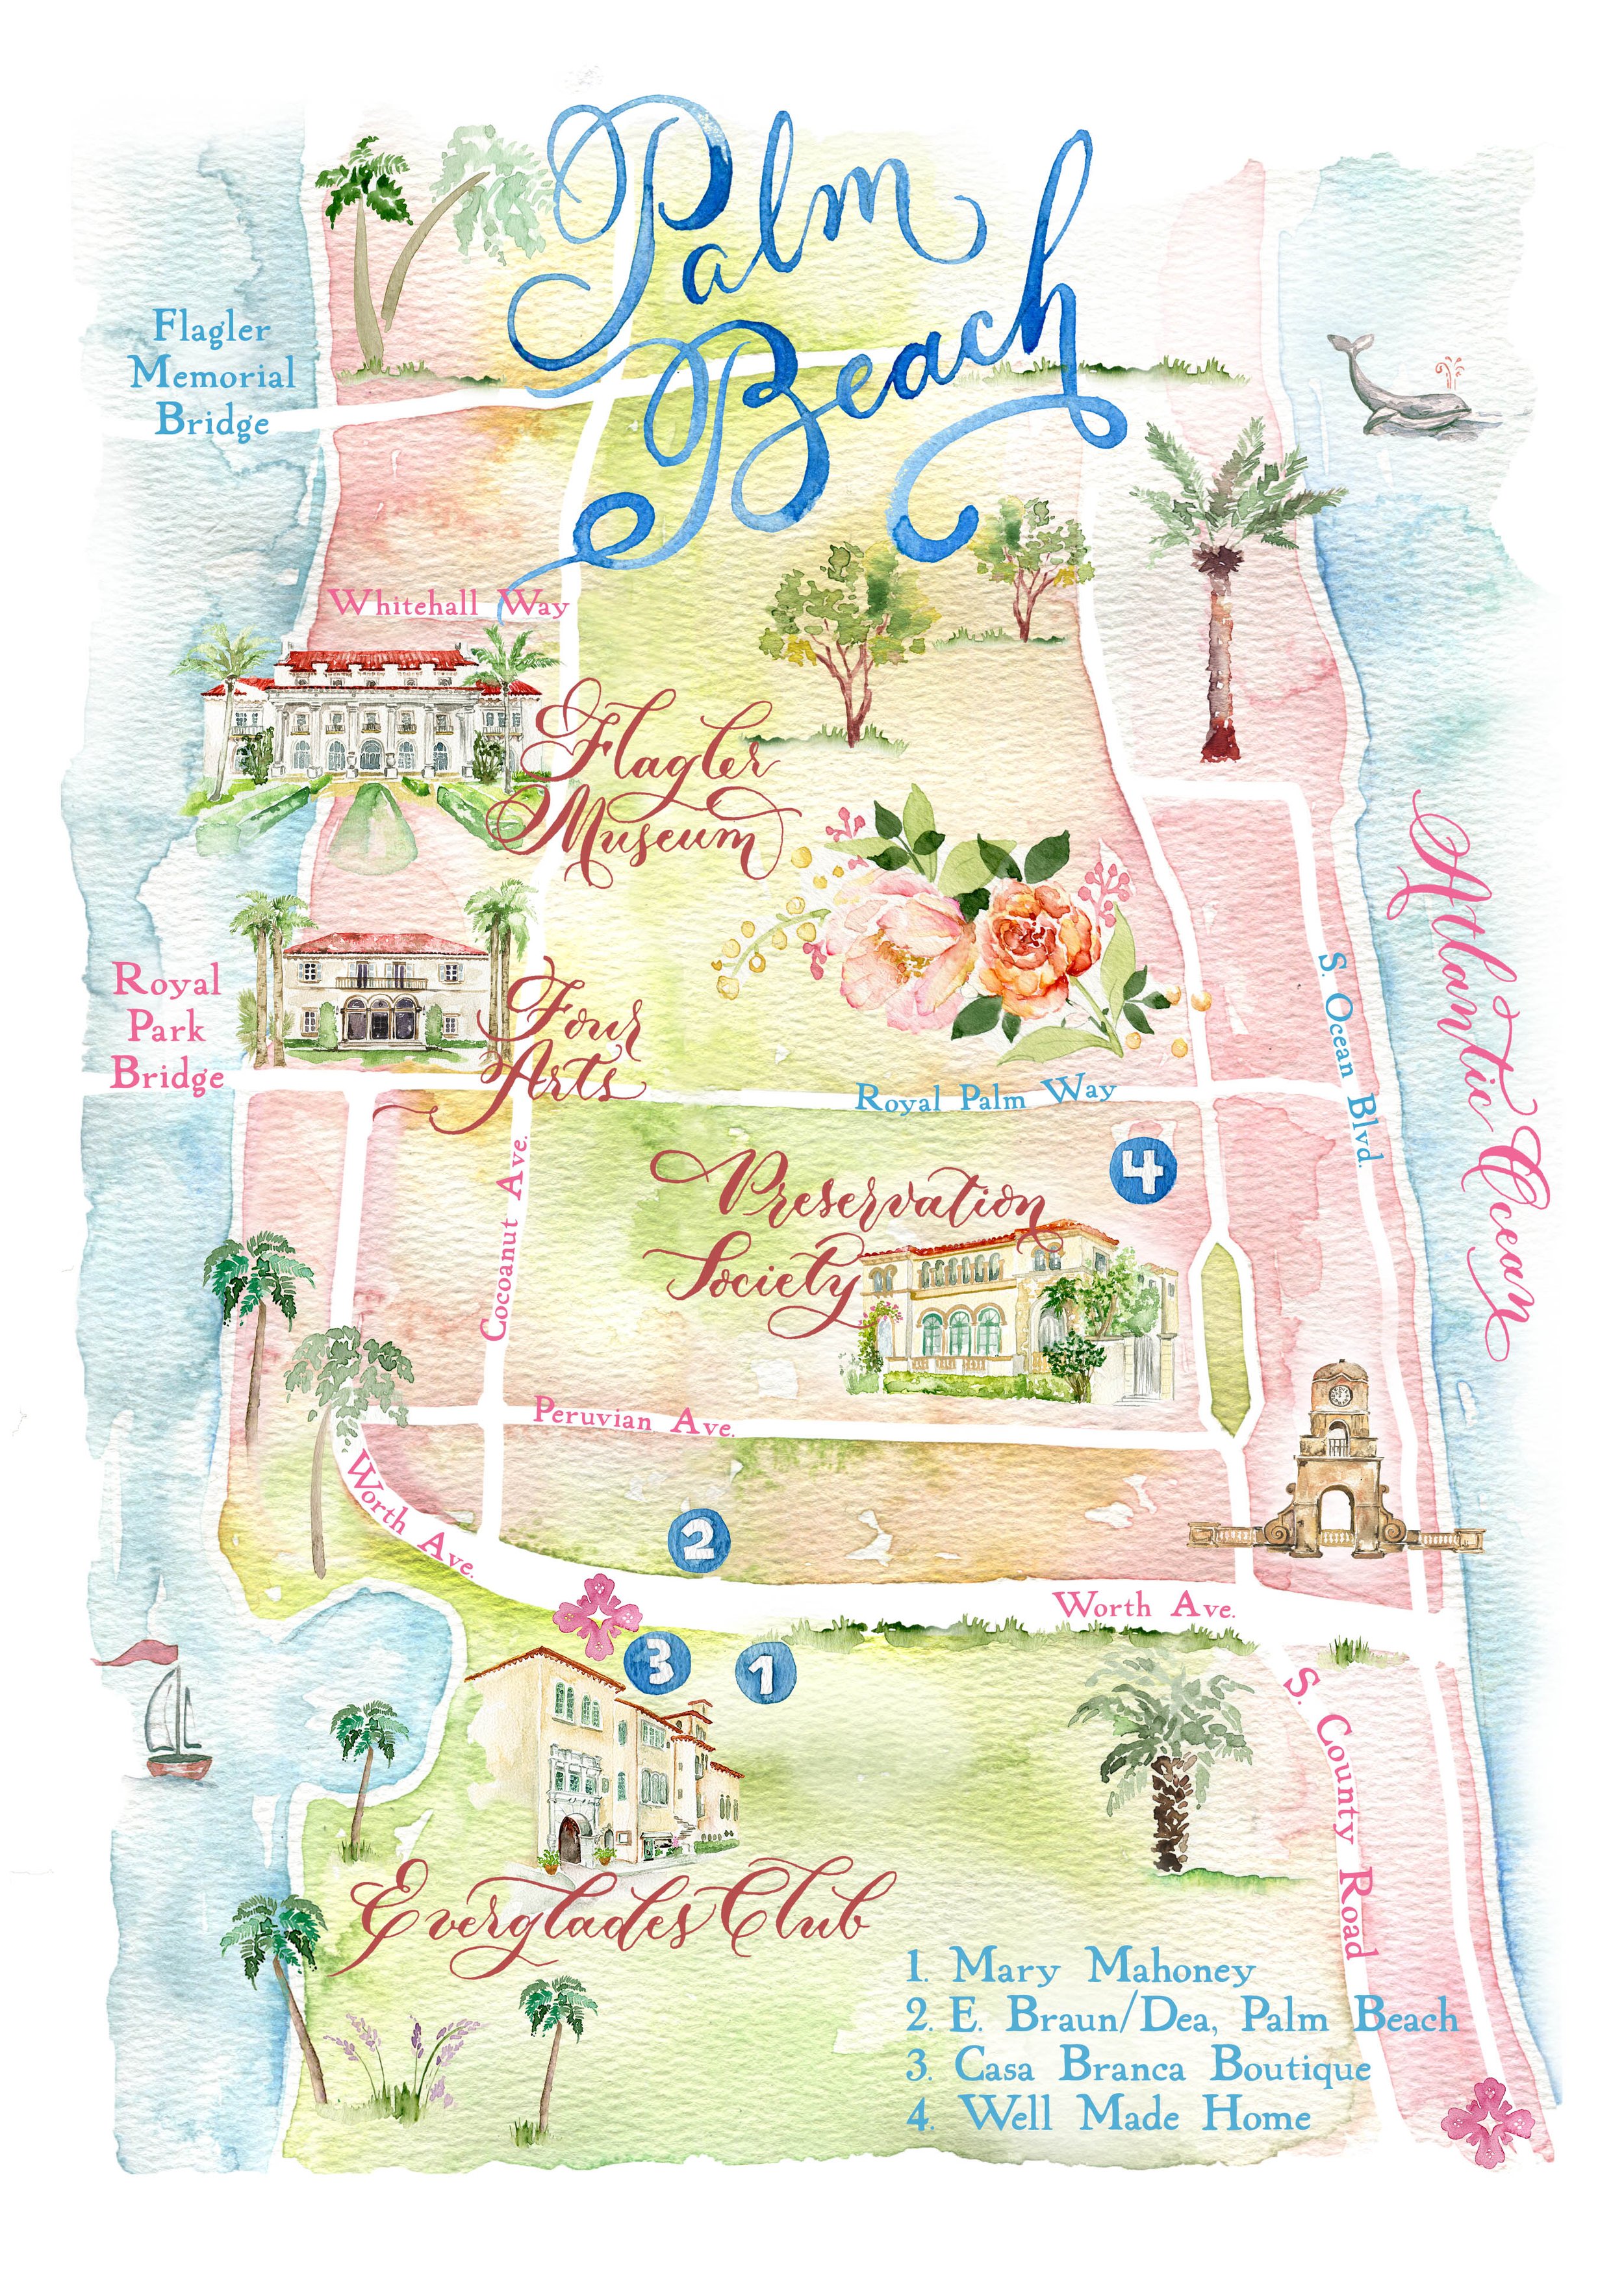 Palm
Beach
Flagler
Memorial
Bridge
Whitehall Way
Flagler
Museum
Atlantic Ocean
S. Ocean Blvd.
Royal
Park
Bridge
Four
Arts
Royal Palm Way
Cocoanut Ave.
4
Preservation
Society
Peruvian Ave.
Worth Ave.
2
Worth Ave.
3
1
S. County Road
Everglades Club
1. Mary Mahoney
2. E. Braun/Dea, Palm Beach
3. Casa Branca Boutique
4. Well Made Home